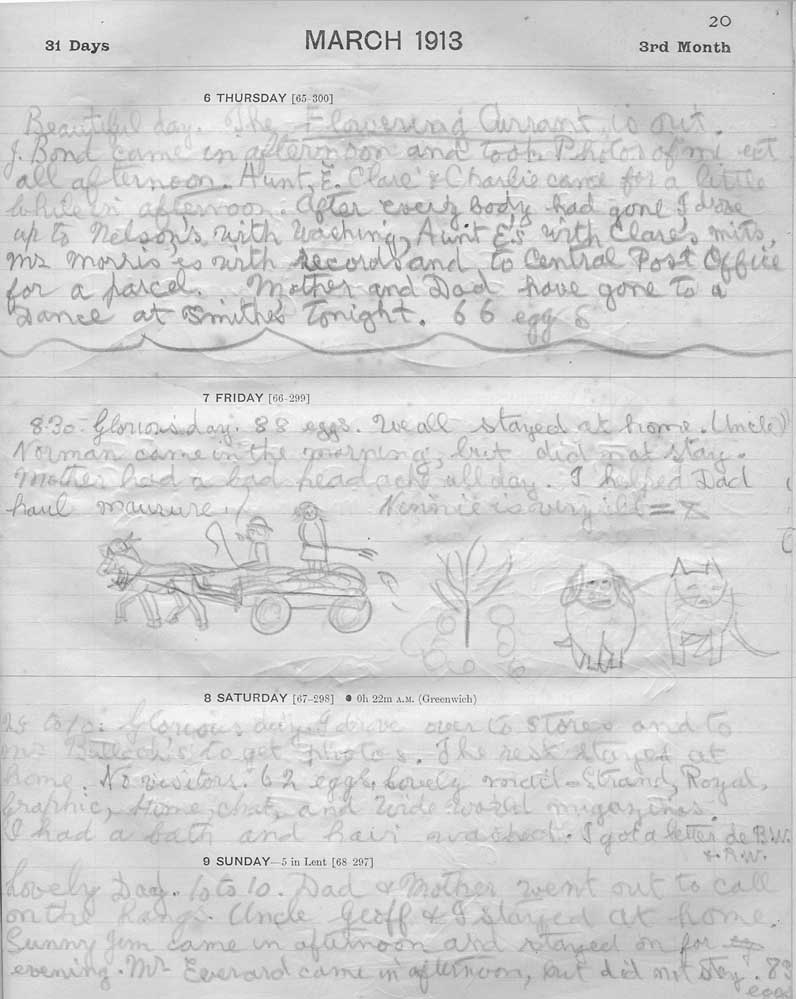 20
31 Days MARCH 1913 3rd Month
6 THURSDAY [65-300]
Beautiful day. The Flowering Currant is out.
J. Bond came in afternoon and took Photos of mi ect
all afternoon. Aunt. E. Clare & Charlie came for a little
while in afternoon. After every body had gone I drove
up to Nelson's with Washing, Aunt E's with Clare's mits,
Mrs Morris es with records and to Central Post Office
for a parcel. Mother and Dad have gone to a
Dance at Smiths Tonight. 66 eggs
7 FRIDAY [66-299]
8.30- Glorious day. 88 eggs. We all stayed at home. (Uncle)
Norman came in the morning, but did not stay.
Mother had a bad headache all day. I helped Dad
haul manure. is very ill = X
8 SATURDAY [67-298] ● 0h 22m A.M. (Greenwich)
to 10: Glorious day. I drive over to stores and to
Mrs to get photos. The rest stayed at
home. No visitors. 62 eggs. Lovely mail - Strand, Royal,
Graphic, Home chat, and Wide world magazines.
I had a bath and hair washed. I got a letter de B.W.
& R.W.
9 SUNDAY—5 in Lent [68-297]
Lovely Day. 10 to 10. Dad & Mother went out to call
on the Kangs. Uncle Geoff & I stayed at home.
Sunny Jim came in afternoon and stayed on for
evening. Mr Everard came in afternoon, but did not stay. 83
eggs